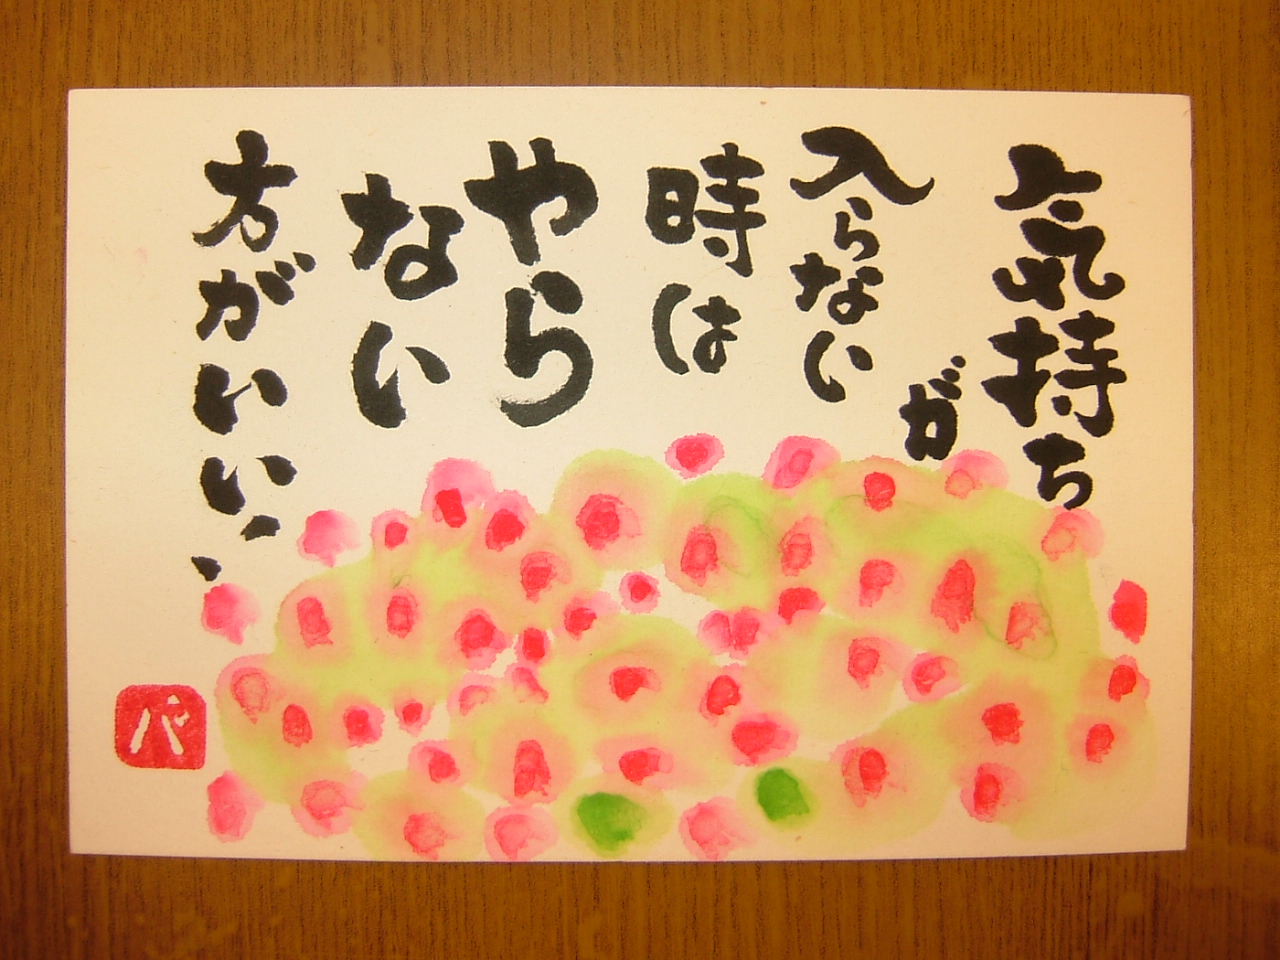 気持ち
が
入らない
時は
やら
ない
方がいい、、
パ